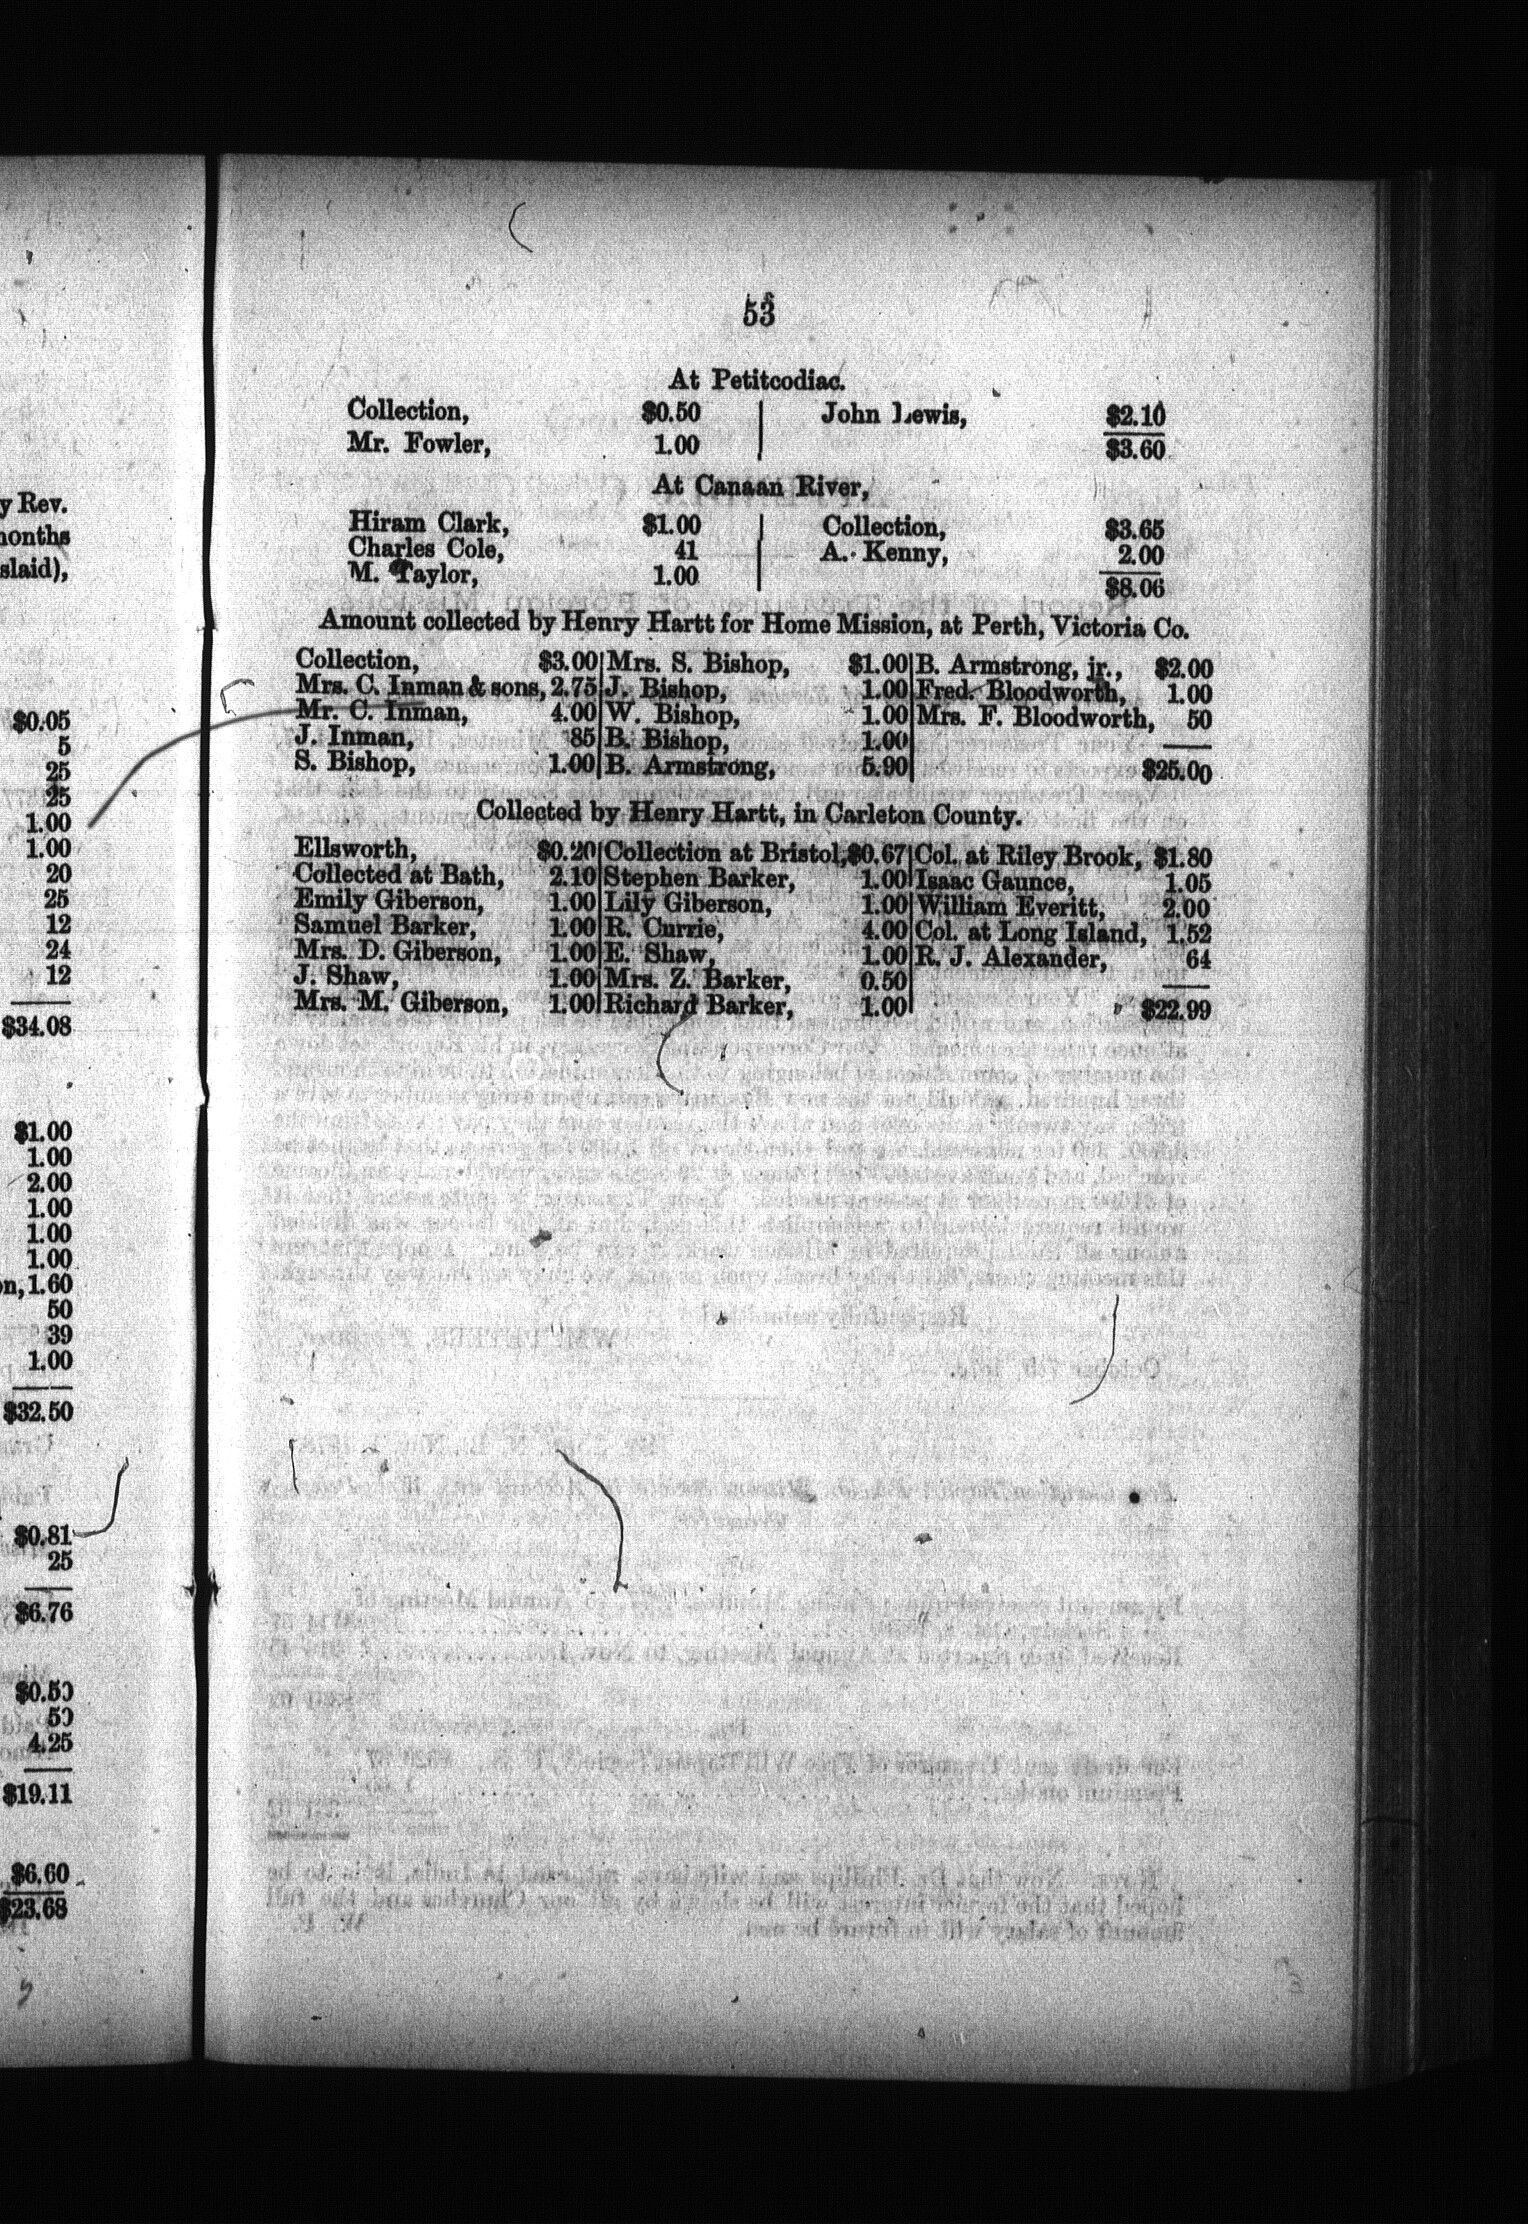 y Rev.
months
slaid),
$0.05
5
25
25
1.00
1.00
20
25
12
24
12
$34.08
$1.00
1.00
2.00
1.00
1.00
1.00
on, 1.60
50
39
1.00
$32.50
$0.81
25
$6.76
$0.50
50
4.25
$19.11
$6.60
$23.68
53
At Petitcodiac.
Collection, $0.50 John Lewis, $2.10
Mr. Fowler, 1.00 $3.60
At Canaan River,
Hiram Clark, $1.00 Collection, $3.65
Charles Cole, 41 A. Kenny, 2.00
M. Taylor, 1.00 $8.06
Amount collected by Henry Hartt for Home Mission, at Perth, Victoria Co.
Collection, $3.00 Mrs. S. Bishop, $1.00 B. Armstrong, jr., $2.00
Mrs. C. Inman & sons, 2.75 J. Bishop, 1.00 Fred. Bloodworth, 1.00
Mr. C. Inman, 4.00 W. Bishop, 1.00 Mrs. F. Bloodworth, 50
J. Inman, 85 B. Bishop, 1.00
S. Bishop, 1.00 B. Armstrong, 5.90 $25.00
Collected by Henry Hartt, in Carleton County.
Ellsworth, $0.20 Collection at Bristol, $0.67 Col. at Riley Brook, $1.80
Collected at Bath, 2.10 Stephen Barker, 1.00 Isaac Gaunce, 1.05
Emily Giberson, 1.00 Lily Giberson, 1.00 William Everitt, 2.00
Samuel Barker, 1.00 R. Currie, 4.00 Col. at Long Island, 1.52
Mrs. D. Giberson, 1.00 E. Shaw, 1.00 R. J. Alexander, 64
J. Shaw, 1.00 Mrs. Z. Barker, 0.50
Mrs. M. Giberson, 1.00 Richard Barker, 1.00 $22.99